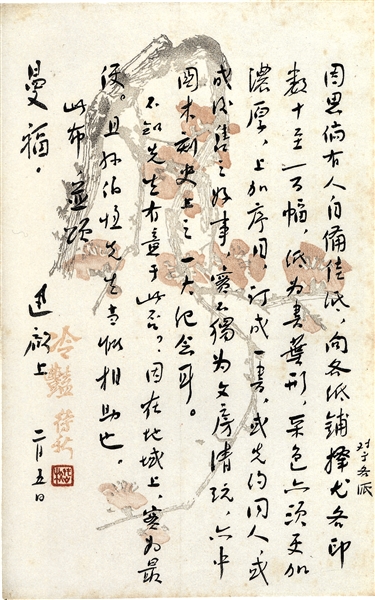 因思倘有人自备佳纸，向各纸铺择尤各印
对于各派
数十至一百幅，纸为书叶形，采色亦须更加
浓厚，上加序目，订成一书，或先约同人，或
成后售之好事，实不独为文房清玩，亦中
国木刻史上之一大纪念耳。
不知先生有意于此否？因在地域上，实为最
便。且孙伯恒先生当能相助也。
此布，并颂
曼福。
迅启上 二月五日
冷艳